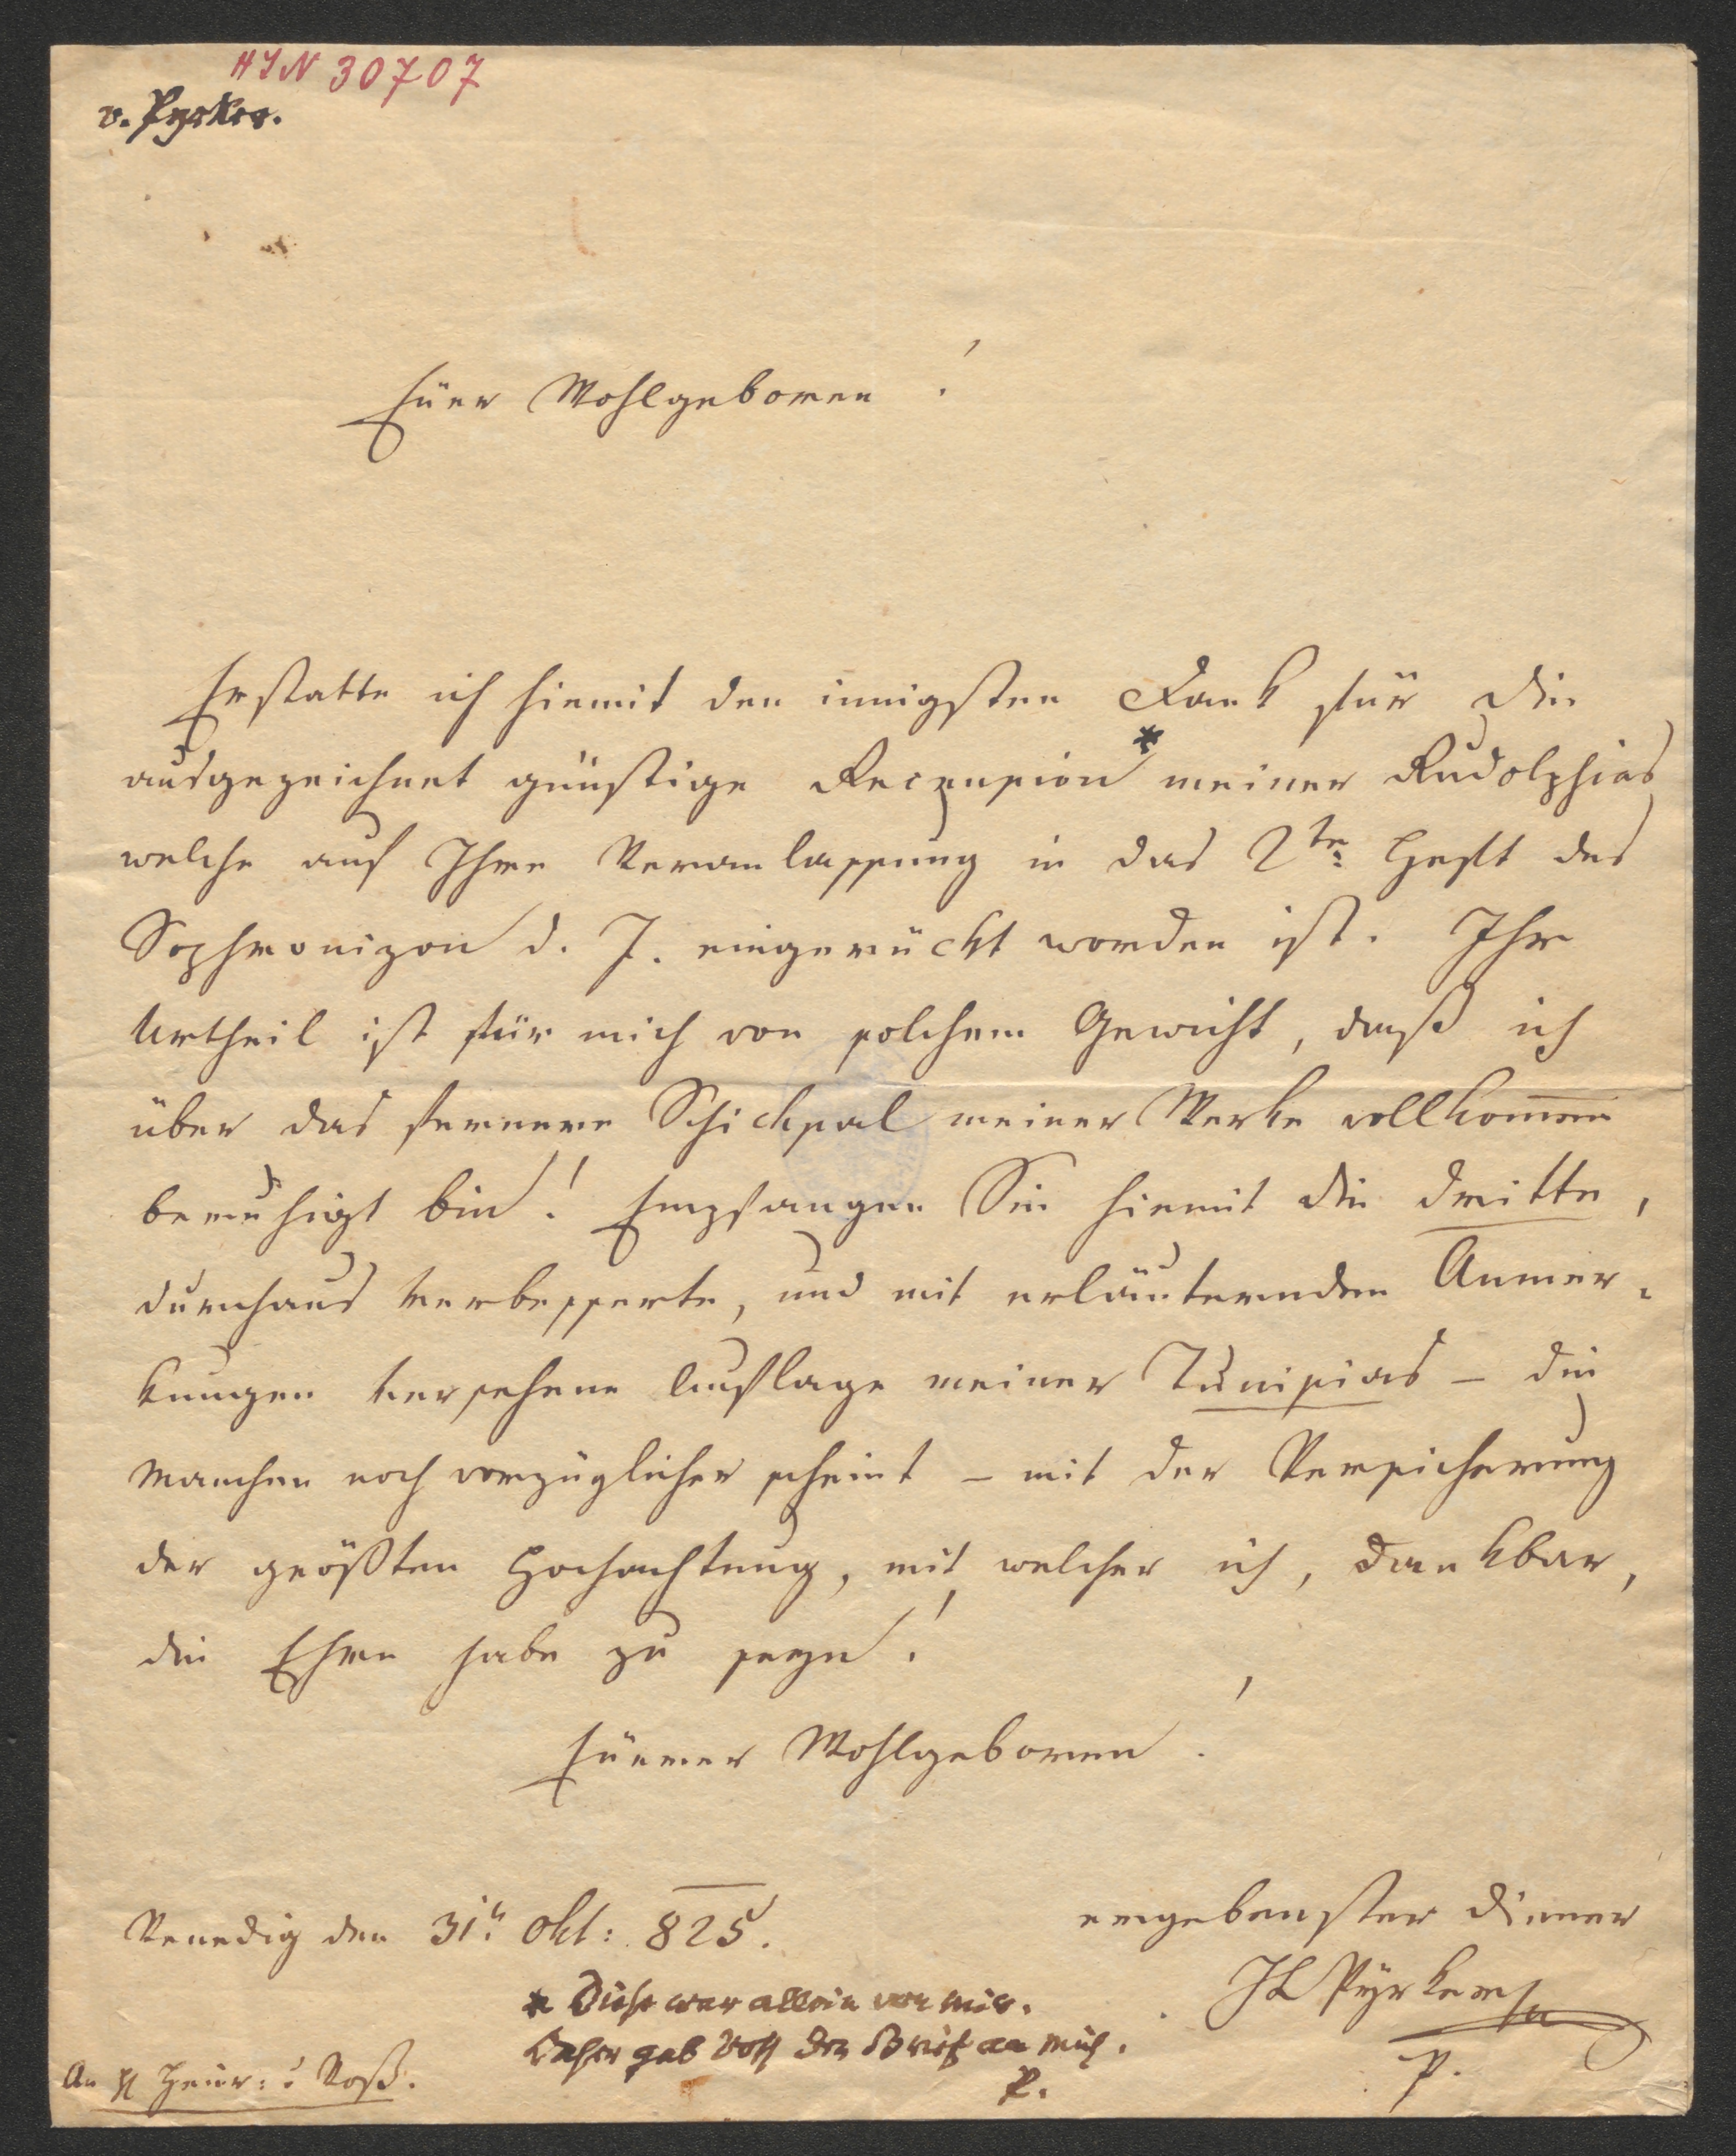 HIN 30707
v. Pyrker.
Euer Wohlgeboren!
Erstatte ich hiemit den innigsten Dank für die
ausgezeichnet günstige Recension * meiner Rudolphias
welche auf Ihre Veranlassung in das 2te Heft des
Sophronizon d. J. eingerückt worden ist. Ihr
Urtheil ist für mich von solchem Gewicht, daß ich
über das fernere Schicksal meiner Werke vollkom̅en
beruhigt bin! Empfangen Sie hiemit die dritte,
durchaus verbesserte, und mit erläuternden Anmer-
kungen versehene Auflage meiner Tunisias – die
Manchen noch vorzüglicher scheint – mit der Versicherung
der größten Hochachtung, mit welcher ich, dankbar,
die Ehre habe zu seyn!
Euerer Wohlgeboren!
Venedig den 31t Okt: 825.
ergebenster Diener
JL Pyrker
P.
* Diese war allein von mir.
Daher gab Voß den Brief an mich.
P.
An H Heinr: Voß.